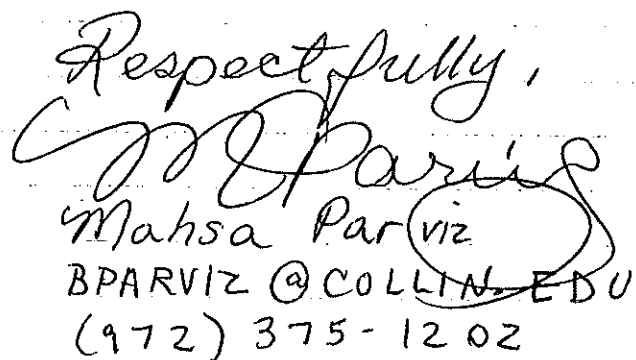 Respectfully,
M Parviz
Mahsa Parviz
BPARVIZ@COLLIN.EDU
(972) 375-1202